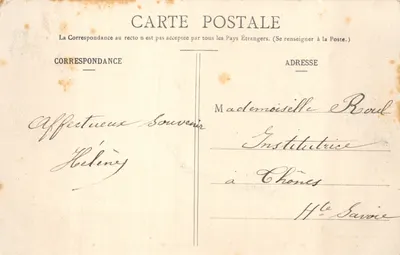 CARTE POSTALE
La Correspondance au recto n est pas acceptée par tous les Pays Étrangers. (Se renseigner à la Poste.)
CORRESPONDANCE
ADRESSE
Affectueux Souvenir
Hélène
Mademoiselle
Institutrice
à Thônes
Hte Savoie